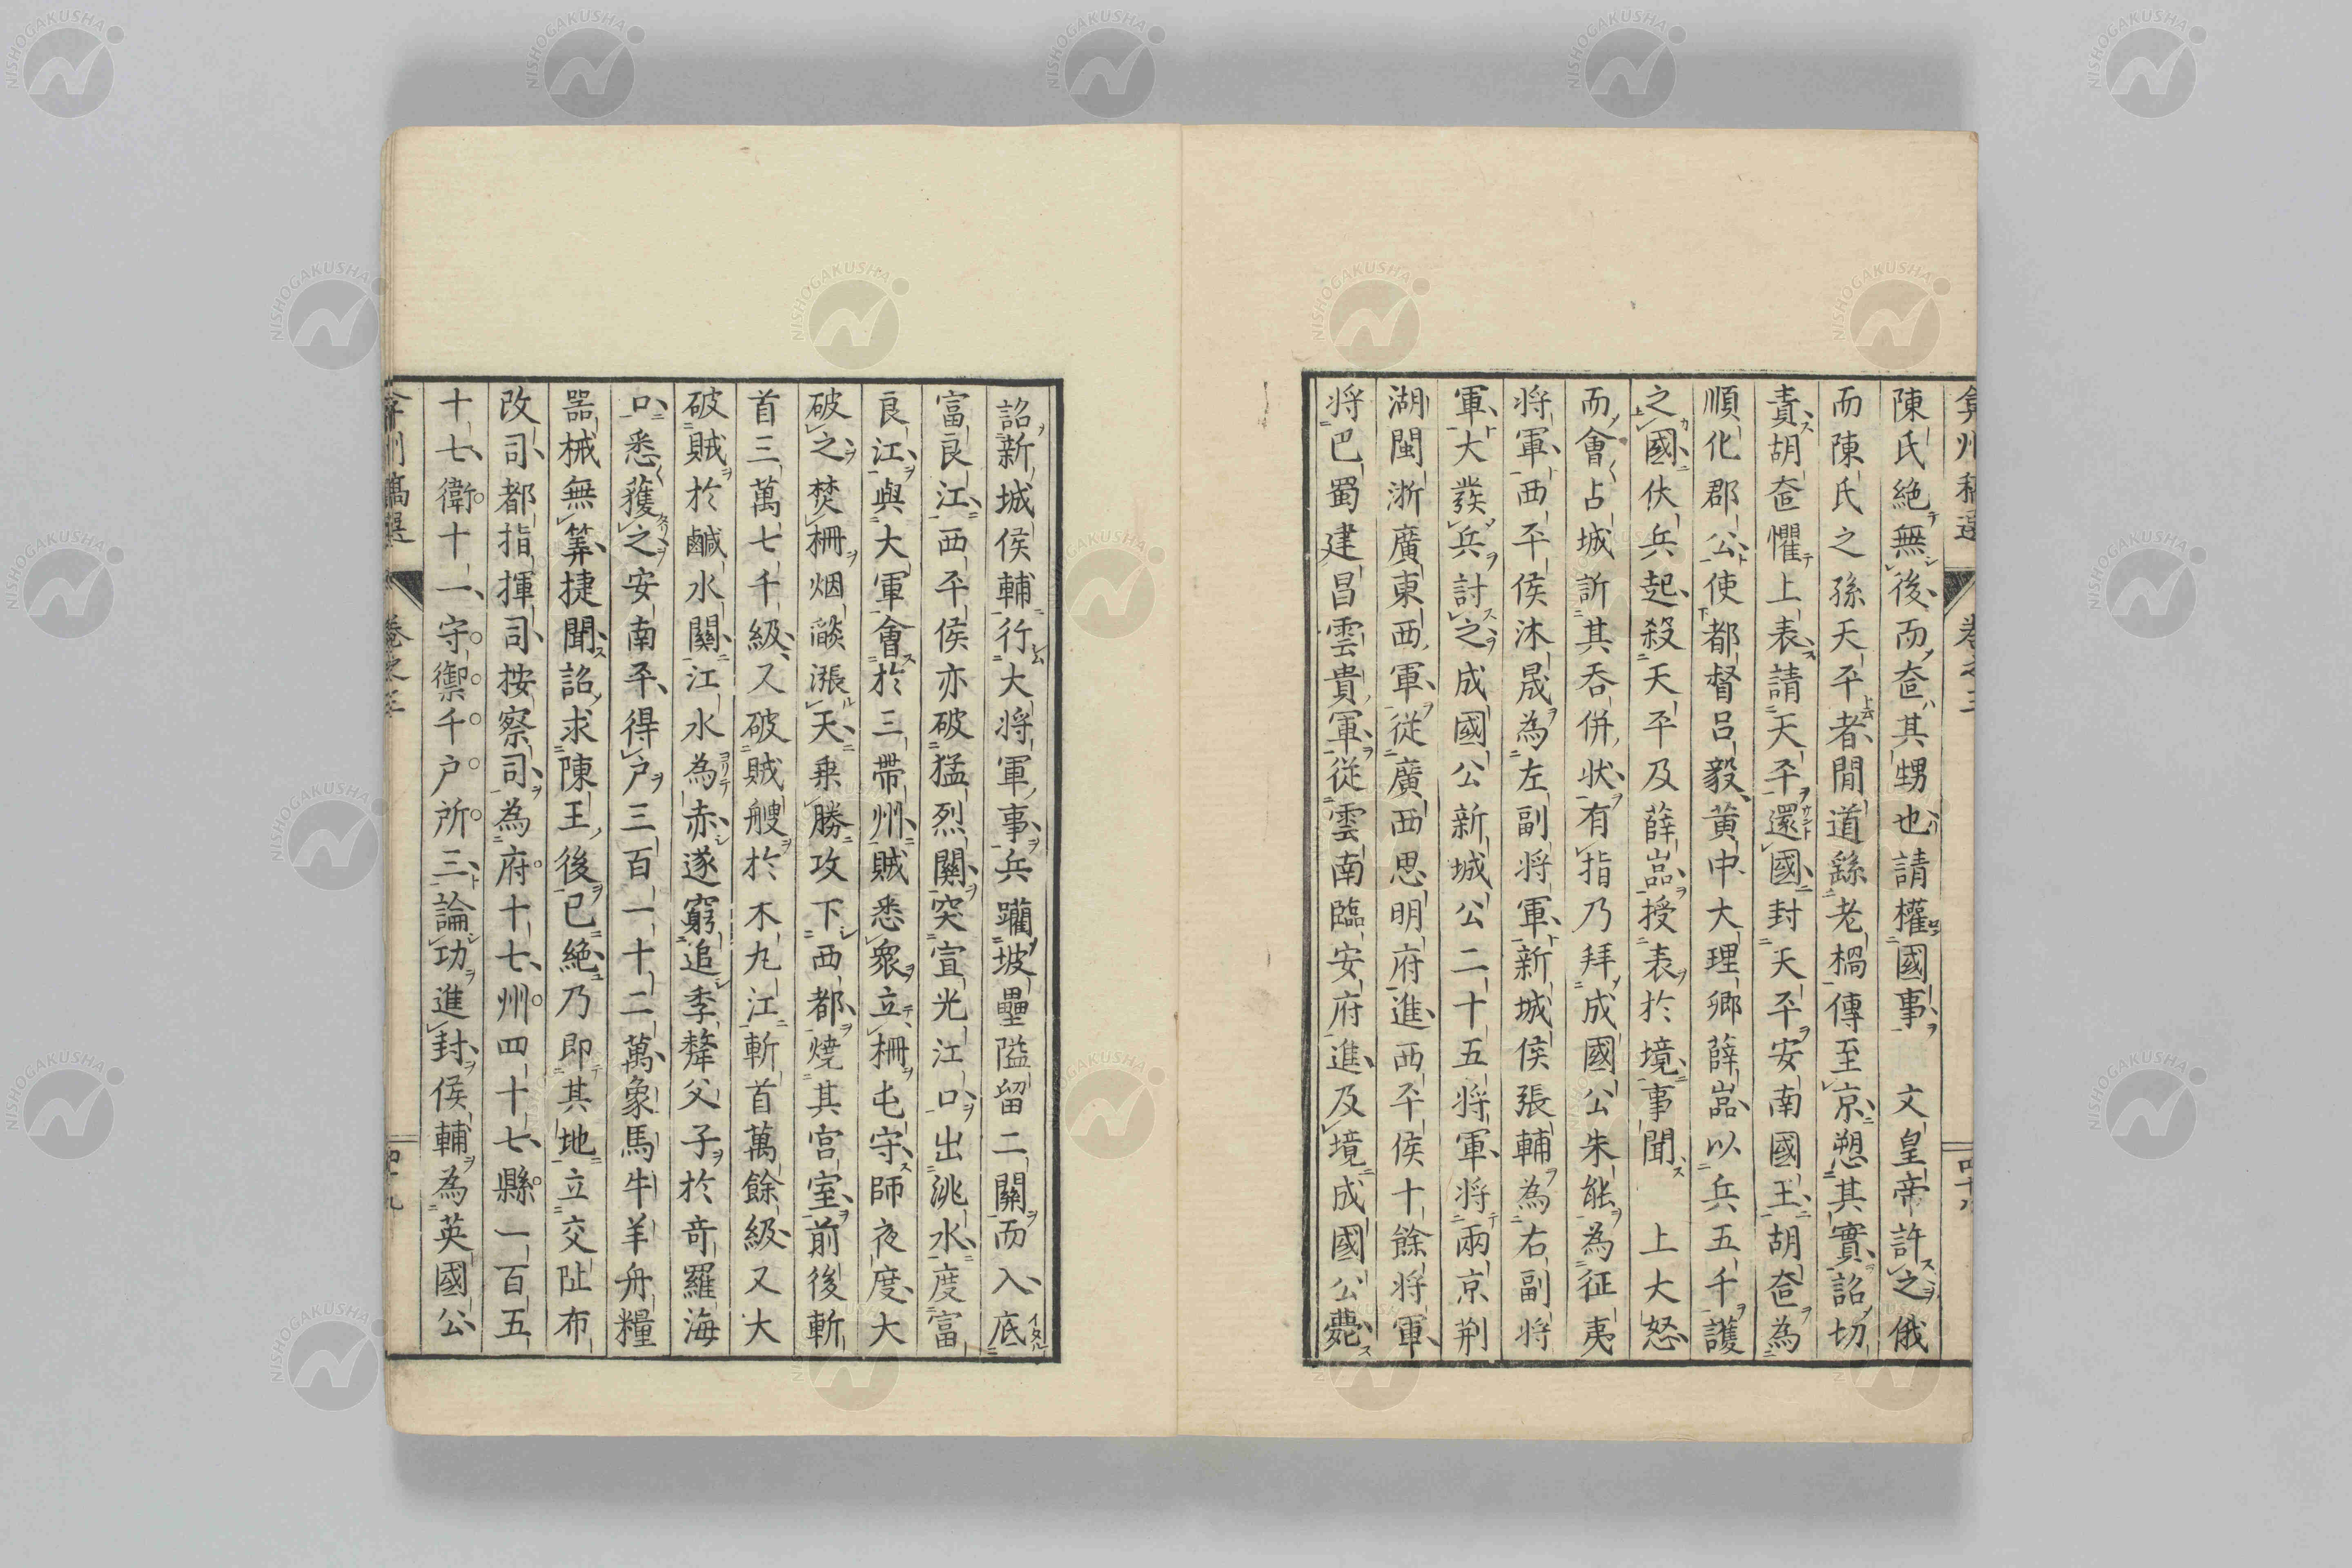 陳氏絶無後而奃其甥也請權國事　文皇帝許之俄
而陳氏之孫天平者間道繇老檛傳至京愬其實詔切
責胡奃懼上表請天平還國封天平安南國王胡奃為
順化郡公使都督呂毅黄中大理卿薛嵓以兵五千護
之國伏兵起殺天平及薛嵓授表於境事聞　上大怒
而會占城訴其吞併狀有指乃拜成國公朱能為征夷
将軍西平侯沐晟為左副将軍新城侯張輔為右副将
軍大發兵討之成國公新城公二十五将軍将兩京荆
湖閩浙廣東西軍從廣西思明府進西平侯十餘将軍
将巴蜀建昌雲貴軍從雲南臨安府進及境成國公薨
詔新城侯輔行大将軍事兵躪坡壘隘留二關而入底
富良江西平侯亦破猛烈關突宣光江口出洮水度富
良江與大軍會於三帶州賊悉衆立柵屯守師夜度大
破之焚柵烟燄漲天乗勝攻下西都燒其宫室前後斬
首三萬七千級又破賊艘於木丸江斬首萬餘級又大
破賊於鹹水關江水為赤遂窮追季犛父子於奇羅海
口悉獲之安南平得户三百一十二萬象馬牛羊舟糧
噐械無筭捷聞詔求陳王後已絶乃即其地立交阯布
改司都指揮司按察司為府十七州四十七縣一百五
十七衛十一守禦千户所三論功進封侯輔為英國公